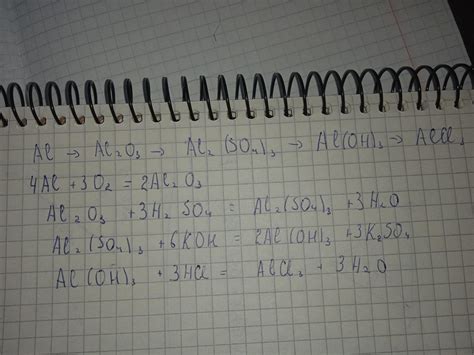 Al → Al₂O₃ → Al₂(SO₄)₃ → Al(OH)₃ → AlCl₃
4Al + 3O₂ = 2Al₂O₃
Al₂O₃ + 3H₂SO₄ = Al₂(SO₄)₃ + 3H₂O
Al₂(SO₄)₃ + 6KOH = 2Al(OH)₃ + 3K₂SO₄
Al(OH)₃ + 3HCl = AlCl₃ + 3H₂O